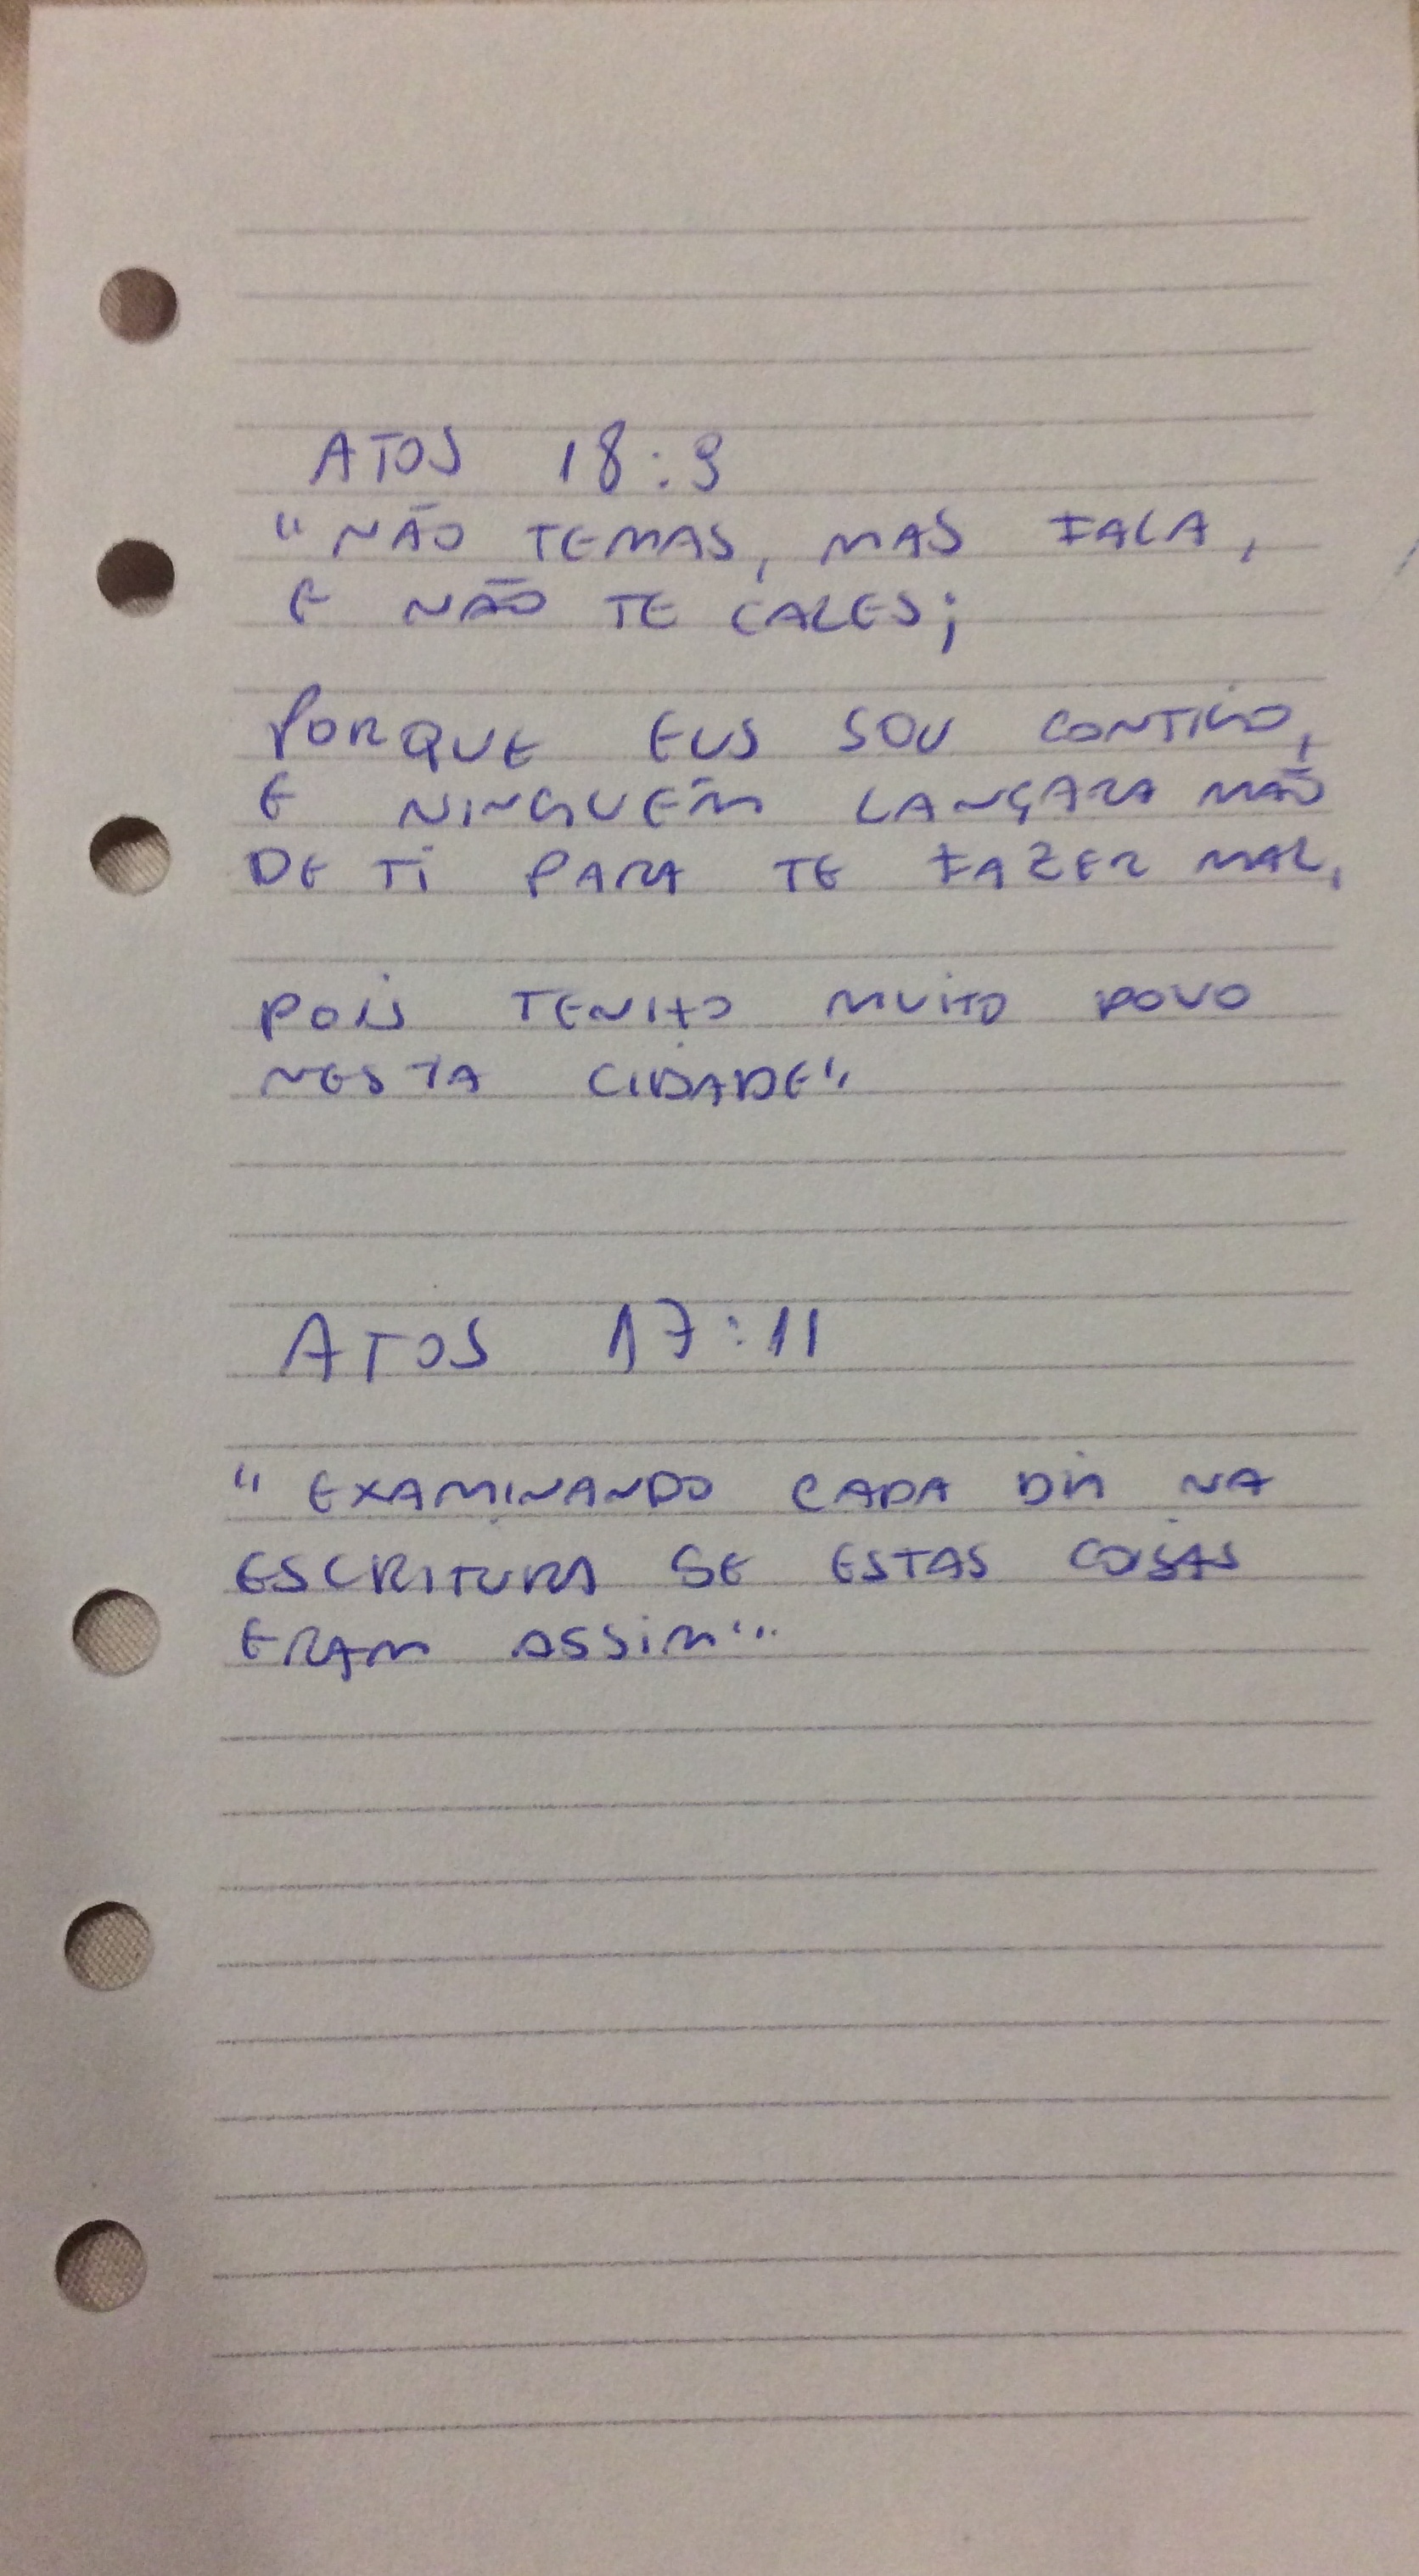 ATOS 18:9
"NÃO TEMAS, MAS FALA,
E NÃO TE CALES;
PORQUE EUS SOU CONTIGO,
E NINGUÉM LANÇARA MÃO
DE TI PARA TE FAZER MAL,
POIS TENHO MUITO POVO
NESTA CIDADE"
ATOS 17:11
"EXAMINANDO CADA DIA NA
ESCRITURA SE ESTAS COISAS
ERAM ASSIM".